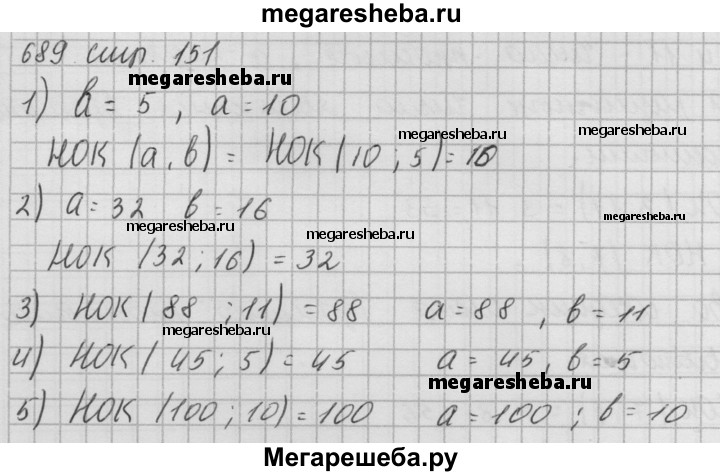 megaresheba.ru
689 стр. 151
megaresheba.ru
1) b = 5 , a = 10
megaresheba.ru
НОК (a, b) = НОК (10 ; 5) = 10
2) a = 32 b = 16
megaresheba.ru
megaresheba.ru
megaresheba.ru
НОК (32 ; 16) = 32
3) НОК (88 ; 11) = 88 a = 88 , b = 11
megaresheba.ru
4) НОК (45 ; 5) = 45 a = 45, b = 5
megaresheba.ru
5) НОК (100 ; 10) = 100 a = 100 ; b = 10
Мегарешеба.ру